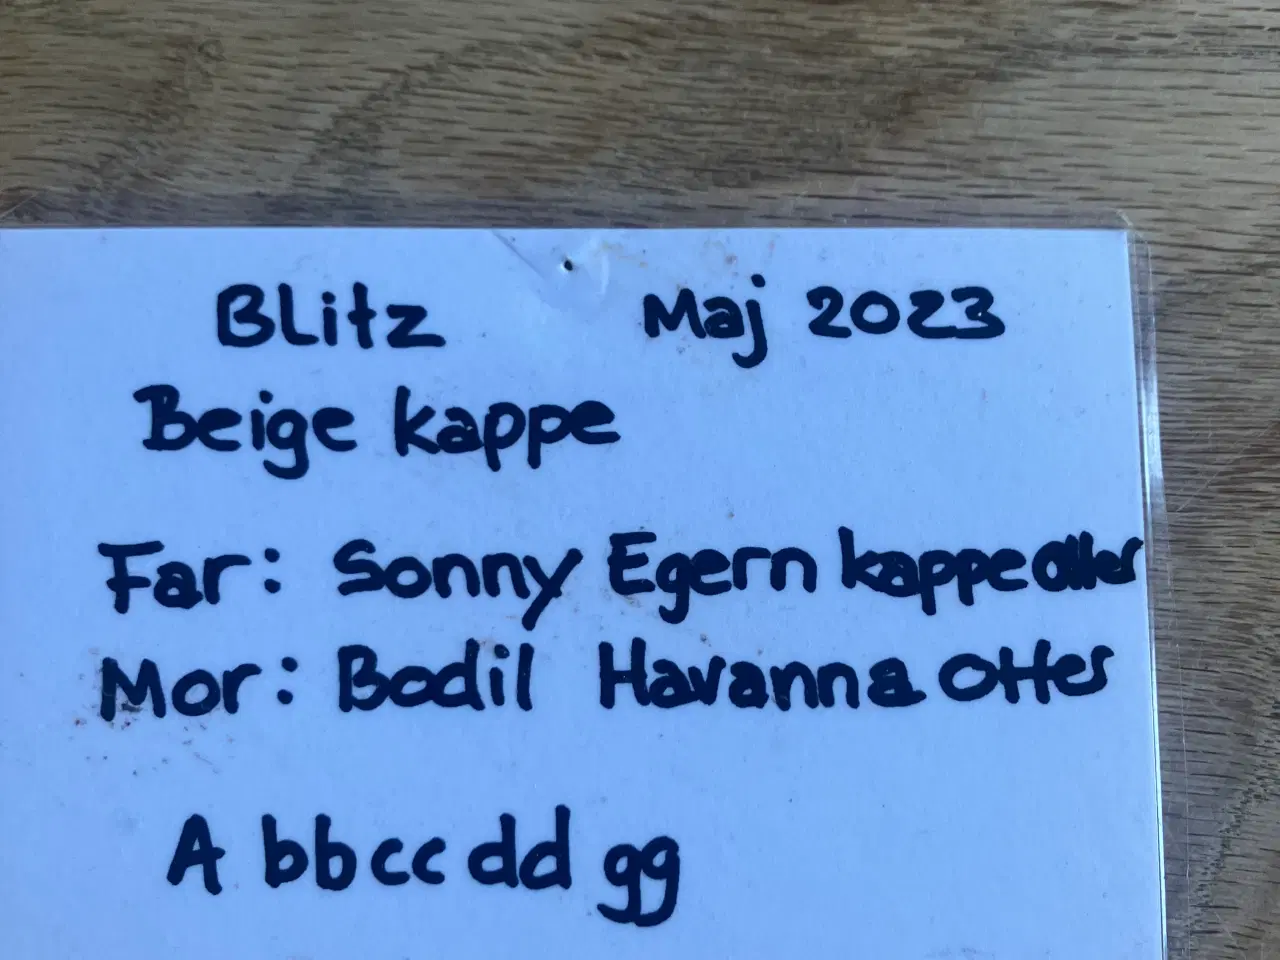 Blitz Maj 2023
Beige kappe
Far: Sonny Egern kappe
Mor: Bodil Havanna Otter
A bb cc dd gg